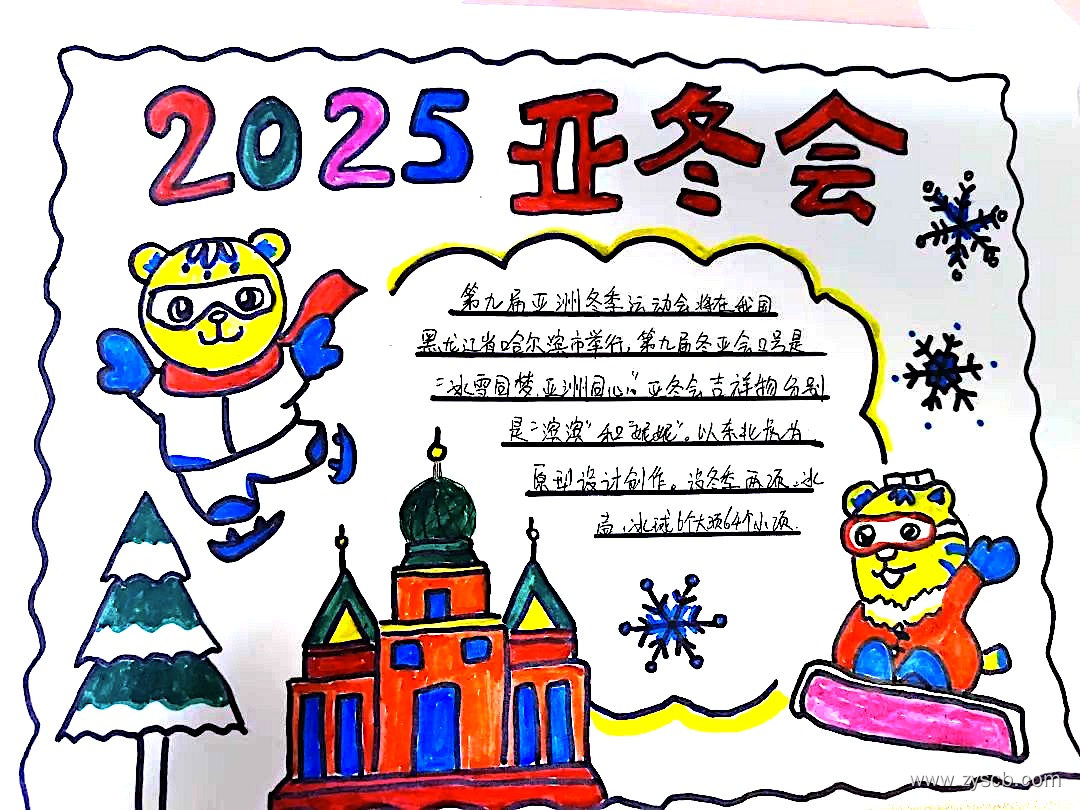 2025 亚冬会
第九届亚洲冬季运动会将在我国
黑龙江省哈尔滨市举行,第九届冬亚会口号是
"冰雪同梦,亚洲同心"亚冬会吉祥物分别
是"滨滨"和"妮妮"。以东北虎为
原型设计创作。设冬季两项、冰
壶、冰球6个大项64个小项
www.zyscb.com